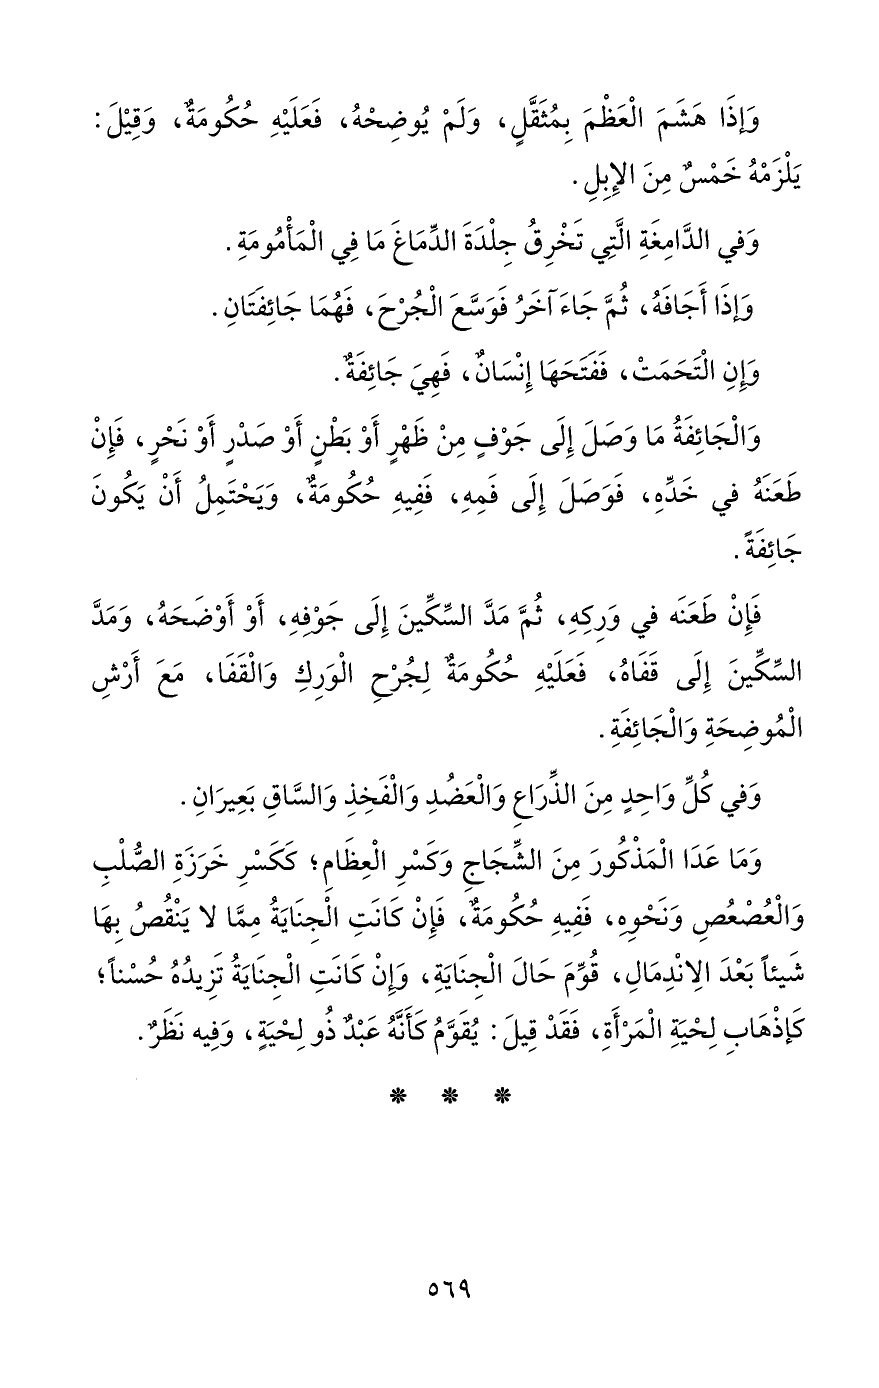 وَإِذَا هَشَمَ الْعَظْمَ بِمُثَقَّلٍ، وَلَمْ يُوضِحْهُ، فَعَلَيْهِ حُكُومَةٌ، وَقِيْلَ:
يَلْزَمْهُ خَمْسٌ مِنَ الإِبِلِ.
وَفي الدَّامِغَةِ الَّتِي تَخْرِقُ جِلْدَةَ الدِّمَاغَ مَا فِي الْمَأْمُومَةِ.
وَإِذَا أَجَافَهُ، ثُمَّ جَاءَ آخَرُ فَوَسَّعَ الْجُرْحَ، فَهُمَا جَائِفَتَانِ.
وَإِنِ الْتَحَمَتْ، فَفَتَحَهَا إِنْسَانٌ، فَهِيَ جَائِفَةٌ.
وَالْجَائِفَةُ مَا وَصَلَ إِلَى جَوْفٍ مِنْ ظَهْرٍ أَوْ بَطْنٍ أَوْ صَدْرٍ أَوْ نَحْرٍ، فَإِنْ
طَعَنَهُ في خَدِّهِ، فَوَصَلَ إِلَى فَمِهِ، فَفِيهِ حُكُومَةٌ، وَيَحْتَمِلُ أَنْ يَكُونَ
جَائِفَةً.
فَإِنْ طَعَنَه في وَرِكِهِ، ثُمَّ مَدَّ السِّكِّينَ إِلَى جَوْفِهِ، أَوْ أَوْضَحَهُ، وَمَدَّ
السِّكِّينَ إِلَى قَفَاهُ، فَعَلَيْهِ حُكُومَةٌ لِجُرْحِ الْوَرِكِ وَالْقَفَا، مَعَ أَرْشِ
الْمُوضِحَةِ وَالْجَائِفَةِ.
وَفي كُلِّ وَاحِدٍ مِنَ الذِّرَاعِ وَالْعَضُدِ وَالْفَخِذِ وَالسَّاقِ بَعِيرَانِ.
وَمَا عَدَا الْمَذْكُورَ مِنَ الشِّجَاجِ وَكَسْرِ الْعِظَامِ؛ كَكَسْرِ خَرَزَةِ الصُّلْبِ
وَالْعُصْعُصِ وَنَحْوِهِ، فَفِيهِ حُكُومَةٌ، فَإِنْ كَانَتِ الْجِنَايَةُ مِمَّا لا يَنْقُصُ بِهَا
شَيئاً بَعْدَ الِانْدِمَالِ، قُوِّمَ حَالَ الْجِنَايَةِ، وَإِنْ كَانَتِ الْجِنَايَةُ تَزِيدُهُ حُسْناً؛
كَإِذْهَابِ لِحْيَةِ الْمَرْأَةِ، فَقَدْ قِيلَ: يُقَوَّمُ كَأَنَّهُ عَبْدٌ ذُو لِحْيَةٍ، وَفِيه نَظَرٌ.
* * *
٥٦٩